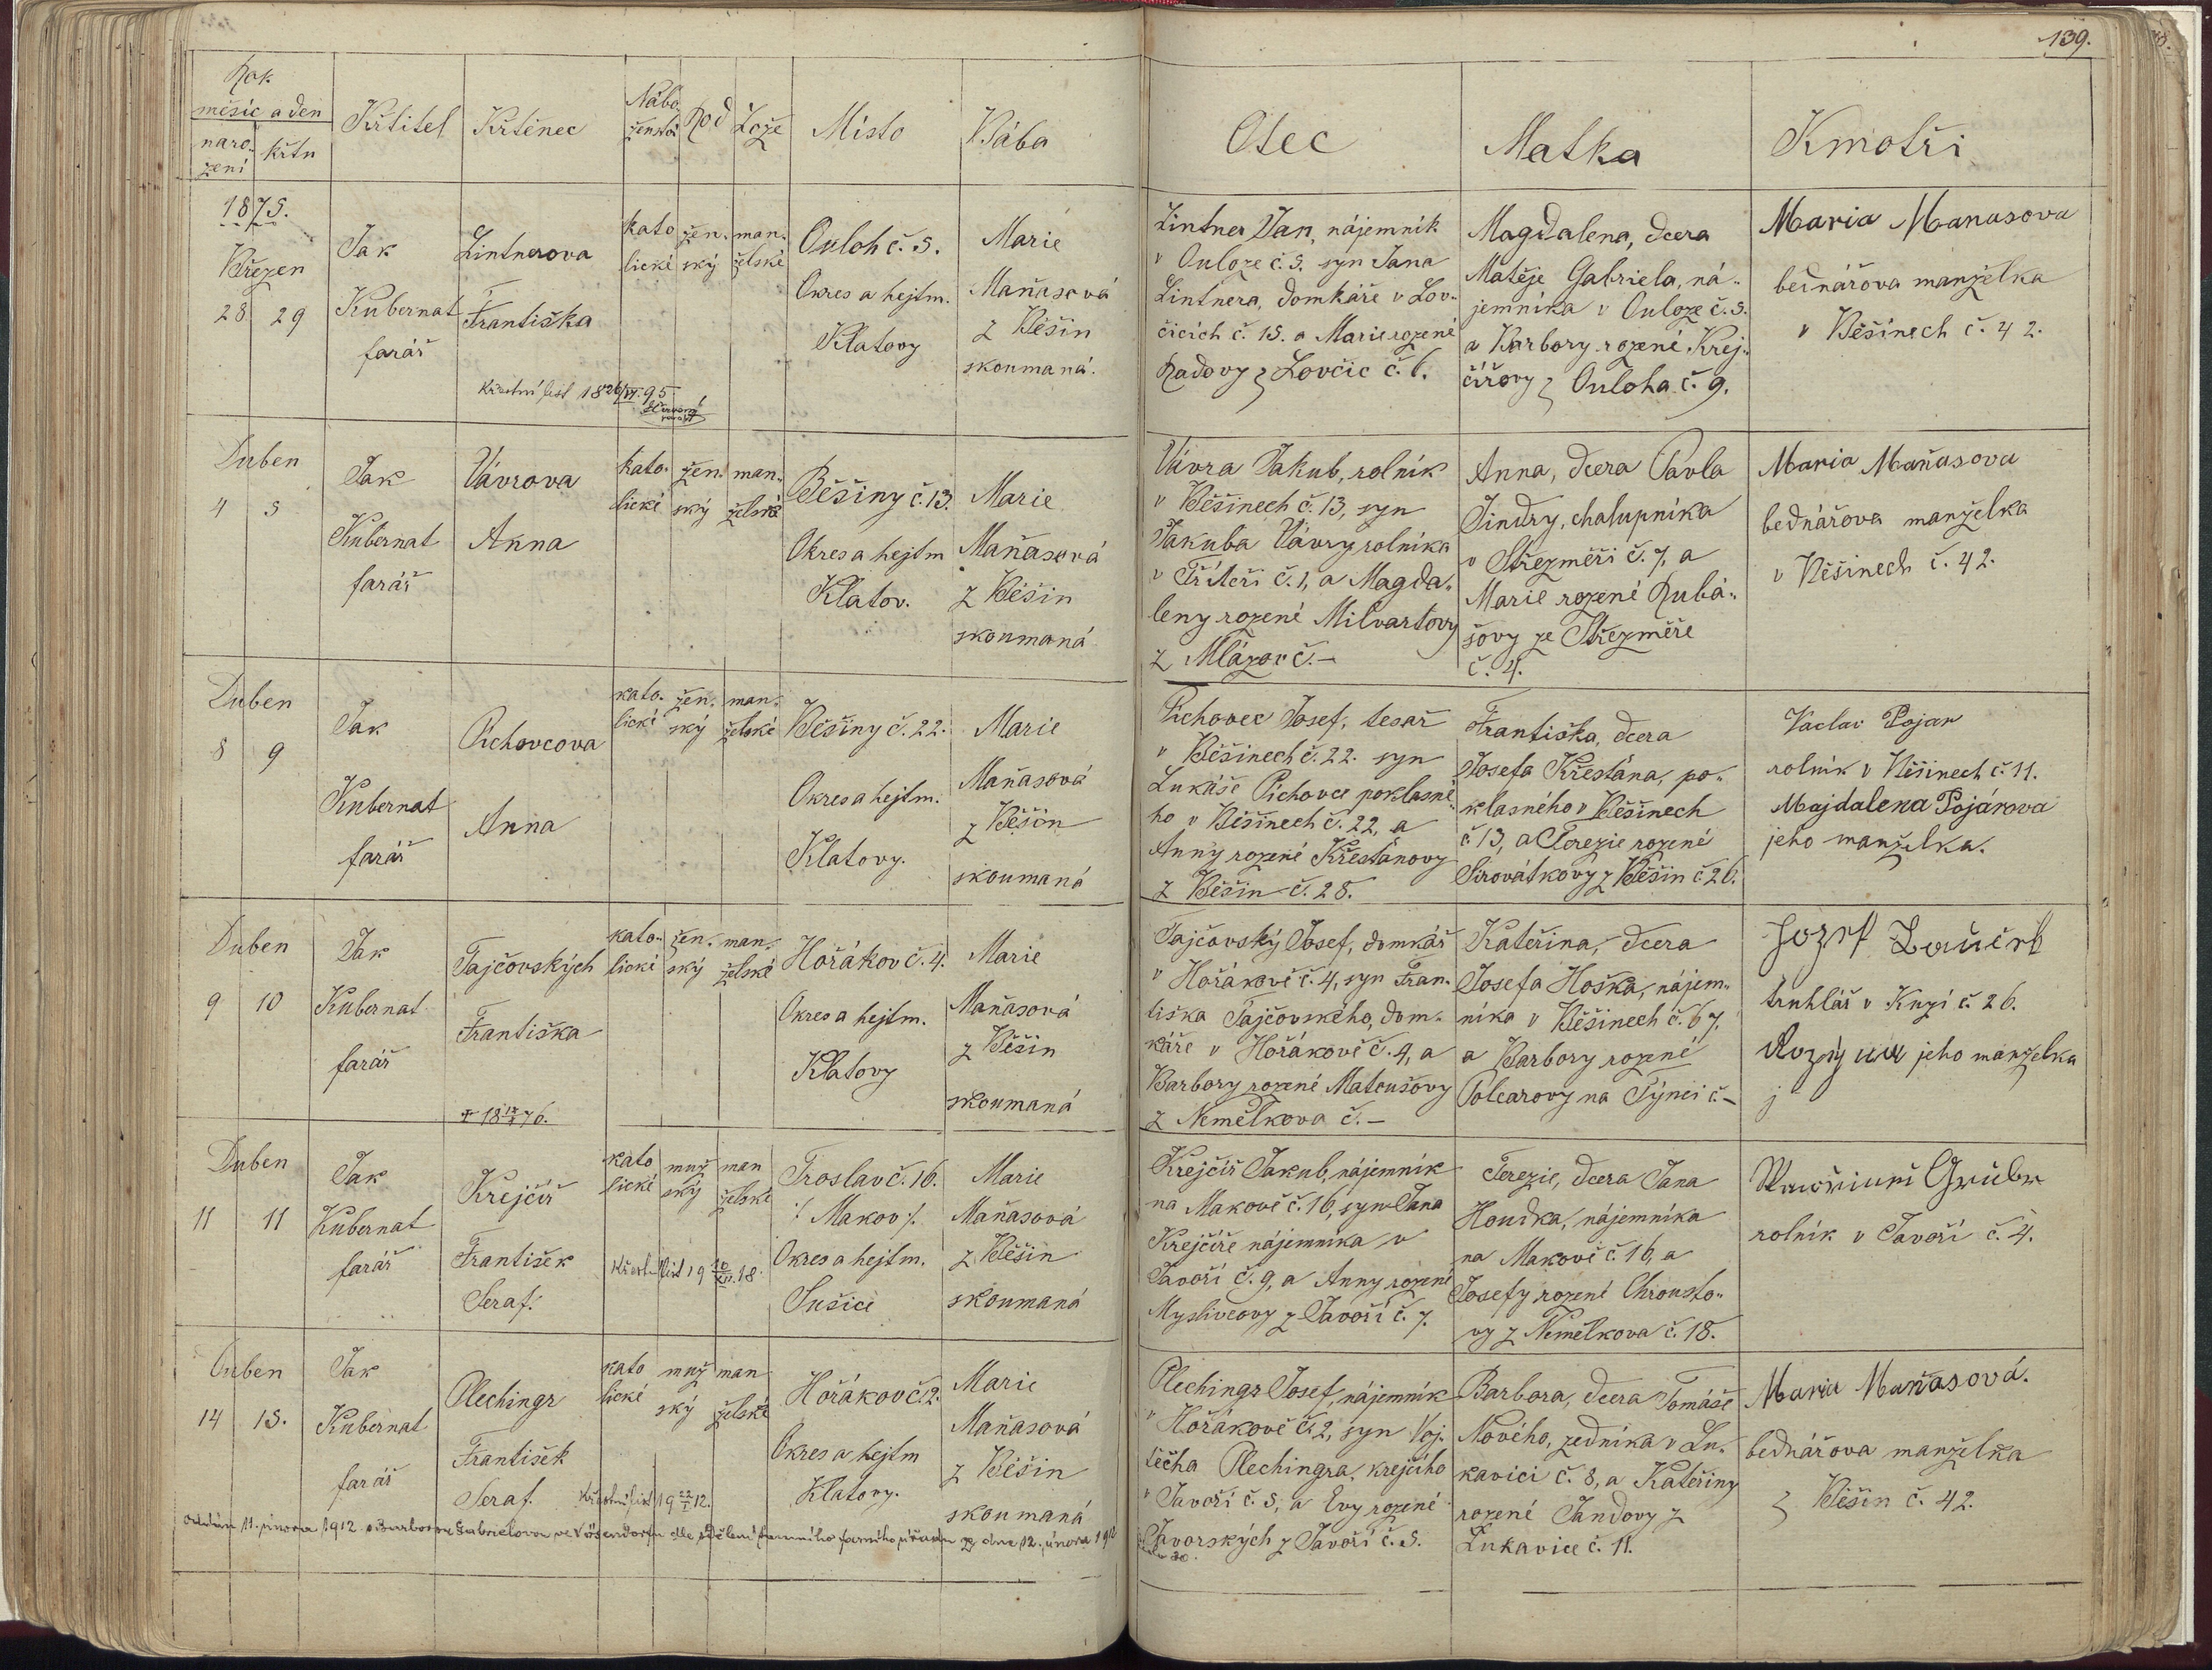 139.
Rok
měsíc a den
naro-
zení
křtu
Křtitel
Křtěnec
Nábo-
ženství
Rod
Lože
Místo
Bába
Otec
Matka
Kmotři
1875.
Březen
28 29
Jak
Kubernat
farář
Lintnerova
Františka
Křestní list 18 26/VI. 95
kato
lické
žen.
ský
man.
želské
Ouloh č. 5.
Okres a hejtm.
Klatovy
Marie
Maňasová
z Běšin
skoumaná.
Lintner Jan, nájemník
v Ouloze č. 5. syn Jana
Lintnera, domkáře v Lov-
čicích č. 15. a Marie rozené
Radovy z Lovčic č. 6.
Magdalena, dcera
Matěje Gabriela, ná-
jemníka v Ouloze č. 5.
a Barbory rozené Krej-
čířovy z Ouloha č. 9.
Maria Manasova
bednářova manželka
v Běšinech č. 42.
Duben
4 5
Jak
Kubernat
farář
Vávrova
Anna
kato-
lické
žen.
ský
man.
želské
Běšiny č. 13.
Okres a hejtm
Klatov.
Marie
Maňasová
z Běšin
skoumaná
Vávra Jakub, rolník
v Běšinech č. 13, syn
Jakuba Vávry rolníka
v Třiteři č. 1, a Magda-
leny rozené Milvartovy
z Mlázov č. –
Anna, dcera Pavla
Jindry, chalupníka
v Střezměři č. 7, a
Marie rozené Rubá-
šovy ze Střezměře
č. 4.
Maria Maňasova
bednářova manželka
v Běšinech č. 42.
Duben
8 9
Jak
Kubernat
farář
Pichovcova
Anna
kato-
lické
žen.
ský
man.
želské
Běšiny č. 22.
Okres a hejtm.
Klatovy.
Marie
Maňasová
z Běšin
skoumaná
Pichovec Josef, tesař
v Běšinech č. 22. syn
Lukáše Pichovce poklasné-
ho v Běšinech č. 22, a
Anny rozené Křesťanovy
z Běšin č. 28.
Františka, dcera
Josefa Křesťána, po-
klasného v Běšinech
č 13, a Terezie rozené
Sirovátkovy z Běšin č 26.
Vaclav Pojar
rolník v Běšinech č. 11.
Majdalena Pojárova
jeho manželka.
Duben
9 10
Jak
Kubernat
farář
Tajčovských
Františka
kato-
lické
žen.
ský
man.
želské
Hořákov č. 4.
Okres a hejtm.
Klatovy
Marie
Maňasová
z Běšin
skoumaná
Tajčovský Josef, domkář
v Hořákově č. 4, syn Fran-
tiška Tajčovského, dom-
káře v Hořákově č. 4, a
Barbory rozené Matoušovy
z Nemělkova č. –
Kateřina, dcera
Josefa Hoška, nájem-
níka v Běšinech č. 67,
a Barbory rozené
Polcarovy na Týnci č –
Jozef
truhlář v Kyzi č 26.
jeho manželka
Duben
11 11
Jak
Kubernat
farář
Krejčíř
František
Seraf.
kato
lické
muž
ský
man
želské
Křest. list 19 20/XII. 18.
Froslav č. 16.
/: Makov :/
Okres a hejtm.
Sušice
Marie
Maňasová
z Běšin
skoumaná
Krejčíř Jakub, nájemník
na Makově č. 16, syn Jana
Krejčíře nájemníka v
Javoří č. 9, a Anny rozené
Myslivcovy z Javoří č. 7.
Terezie, dcera Jana
Houdka, nájemníka
na Makově č. 16, a
Josefy rozené Chrousto-
vy z Nemělkova č. 18.
Grubr
rolník v Javoří č. 4.
Duben
14 15.
Jak
Kubernat
farář
Plechingr
František
Seraf.
kato
lické
muž
ský
man
želské
Křestní list 19 22/I 12.
Hořákov č. 2.
Okres a hejtm
Klatovy.
Marie
Maňasová
z Běšin
skoumaná
Plechingr Josef, nájemník
v Hořákově č. 2, syn Voj-
těcha Plechingra, krejčího
v Javoří č. 5, a Evy rozené
Javorských z Javoří č. 5.
Barbora, dcera Tomáše
Nového, zedníka v Lu-
kavici č. 8, a Kateřiny
rozené Jandovy z
Lukavice č. 11.
Maria Maňasová.
bednářova manželka
z Běšin č. 42.
oddán 11. února 1912 s Barborou Gabrielovou ve Vösendorfu dle sdělení farního úřadu ze dne 12. února 1912